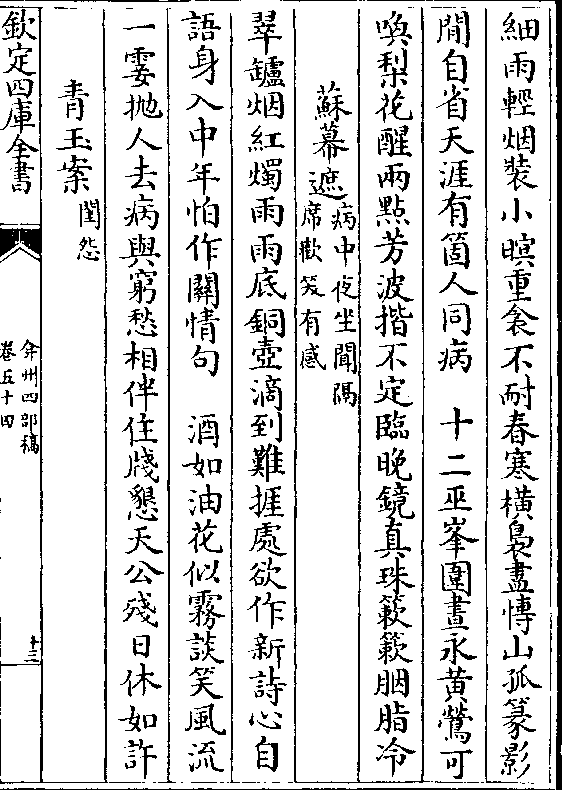 細雨輕烟裝小暝重衾不耐春寒横裊盡慱山孤篆影
閒自省天涯有箇人同病　十二巫峯圍晝永黄鶯可
喚梨花醒兩點芳波揩不定臨晩鏡真珠簌簌胭脂冷
蘇幕遮病中夜坐聞隔
席歡笑有感
翠罏烟紅燭雨雨底銅壺滴到難捱處欲作新詩心自
語身入中年怕作關情句　酒如油花似霧談笑風流
一霎抛人去病與窮愁相伴住牋懇天公殘日休如許
青玉案閨怨
欽定四庫全書
弇州四部稿
卷五十四
十三